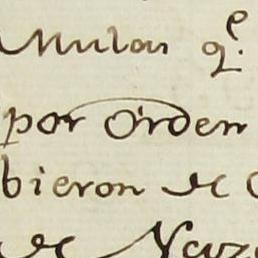 Mulas q.e
por orden
bieron de
de